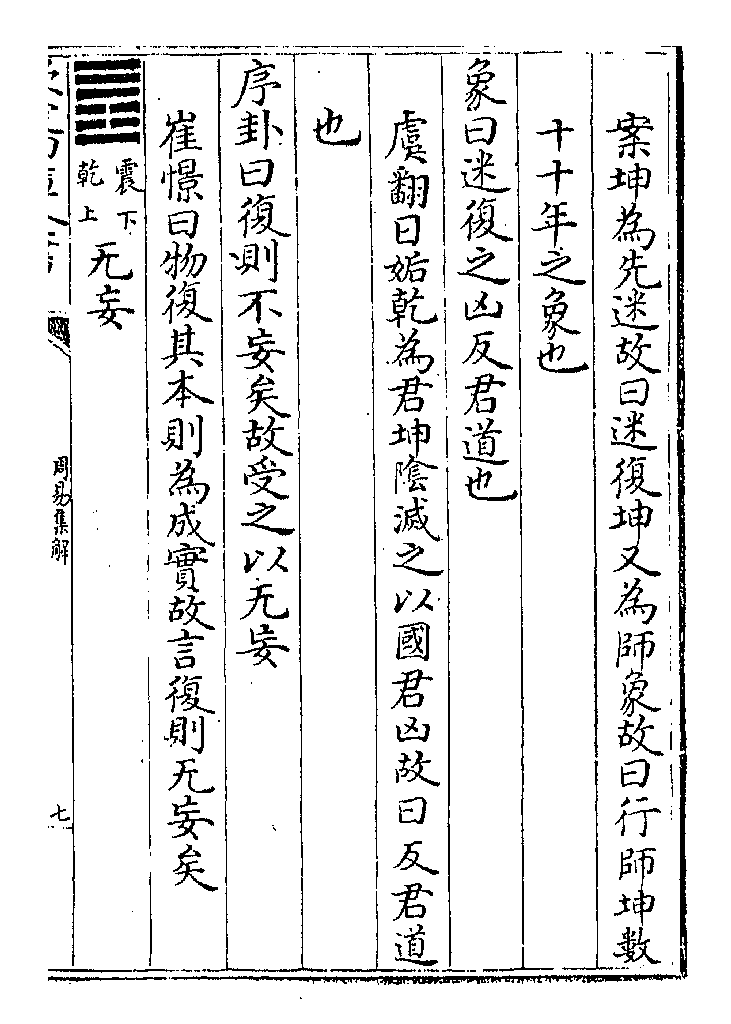 案坤為先迷故曰迷復坤又為師象故曰行師坤數
十十年之象也
象曰迷復之凶反君道也
虞翻曰姤乾為君坤隂滅之以國君凶故曰反君道
也
序卦曰復則不妄矣故受之以无妄
崔憬曰物復其本則為成實故言復則无妄矣
䷘震下乾上无妄
周易集解
七